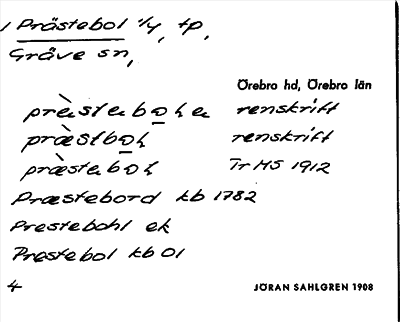 1 Prästebol 1/4, tp,
Gräve sn,
Örebro hd, Örebro län
præ̀stabo̲ɫa renskrift
præ̀stbo̲ɫ renskrift
præ̀staboɫ Tr HS 1912
Præstebord kb 1782
Prestebohl ek
Prestebol kb 01
4 JÖRAN SAHLGREN 1908